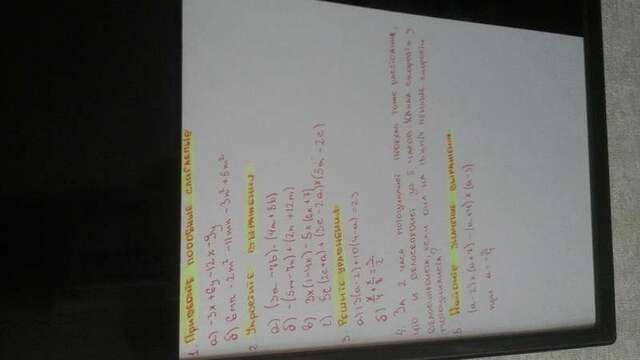 1. Приведите подобные слагаемые
а) -3x+6y-12x-9y
б) 6mn-2m²-11mn-3n²+6m²
2 Упростите выражения
а) (3a-7b)-(4a+8b)
б) -(5m-7n)+(2n+12m)
в) 3x(1-4x)-5x(6x+7)
г) 5c(2c+a)+(3c-2a)×(5a-2c)
3. Решите уравнения
а) 13(a-2)+10(4-a)=23
б)
4. За 2 часа мотоциклист проехал тоже расстояние,
что и велосипедист за 5 часов. Какая скорость у
велосипедиста, если она на км/ч меньше скорости
мотоциклиста?
5. Найдите значение выражения
(a-2)×(a+7)-(a+4)×(a-5)
при a=